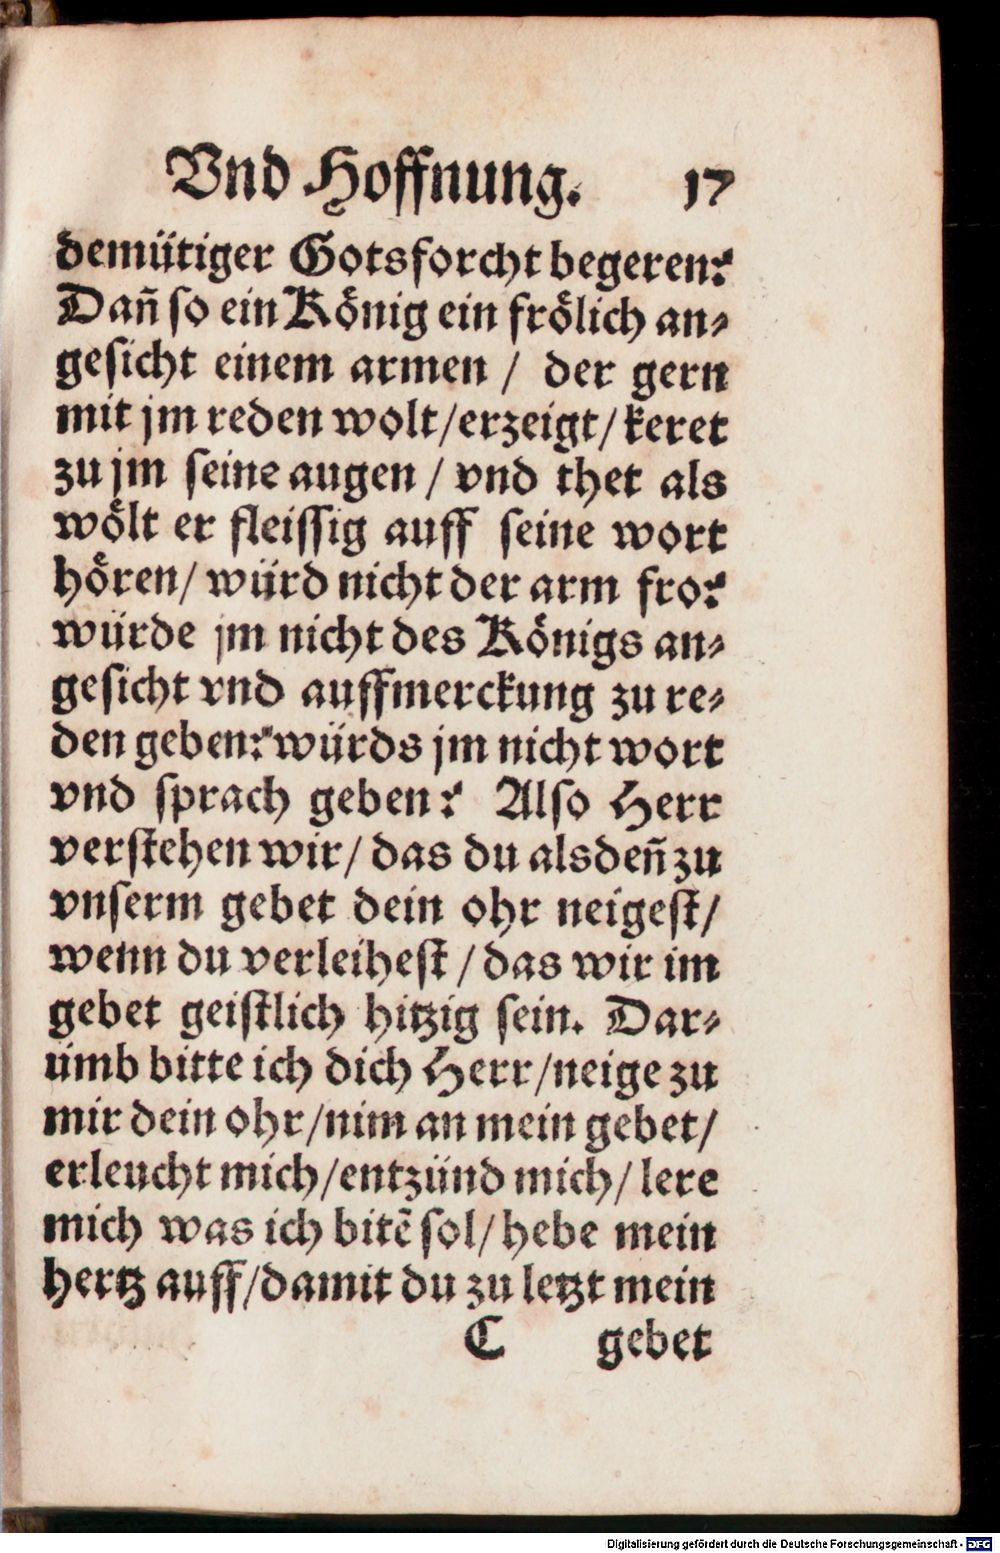 Vnd Hoffnung. 17
demütiger Gotsforcht begeren?
Dañ so ein König ein frölich an⸗
gesicht einem armen / der gern
mit jm reden wolt/erzeigt/keret
zu jm seine augen / vnd thet als
wölt er fleissig auff seine wort
hören/ würd nicht der arm fro?
würde jm nicht des Königs an⸗
gesicht vnd auffmerckung zu re⸗
den geben? würds jm nicht wort
vnd sprach geben? Also Herr
verstehen wir/ das du alsdeñ zu
vnserm gebet dein ohr neigest/
wenn du verleihest / das wir im
gebet geistlich hitzig sein. Dar⸗
ümb bitte ich dich Herr/neige zu
mir dein ohr/nim an mein gebet/
erleucht mich/entzünd mich/ lere
mich was ich bitẽ sol/ hebe mein
hertz auff/damit du zu letzt mein
C gebet
Digitalisierung gefördert durch die Deutsche Forschungsgemeinschaft - DFG